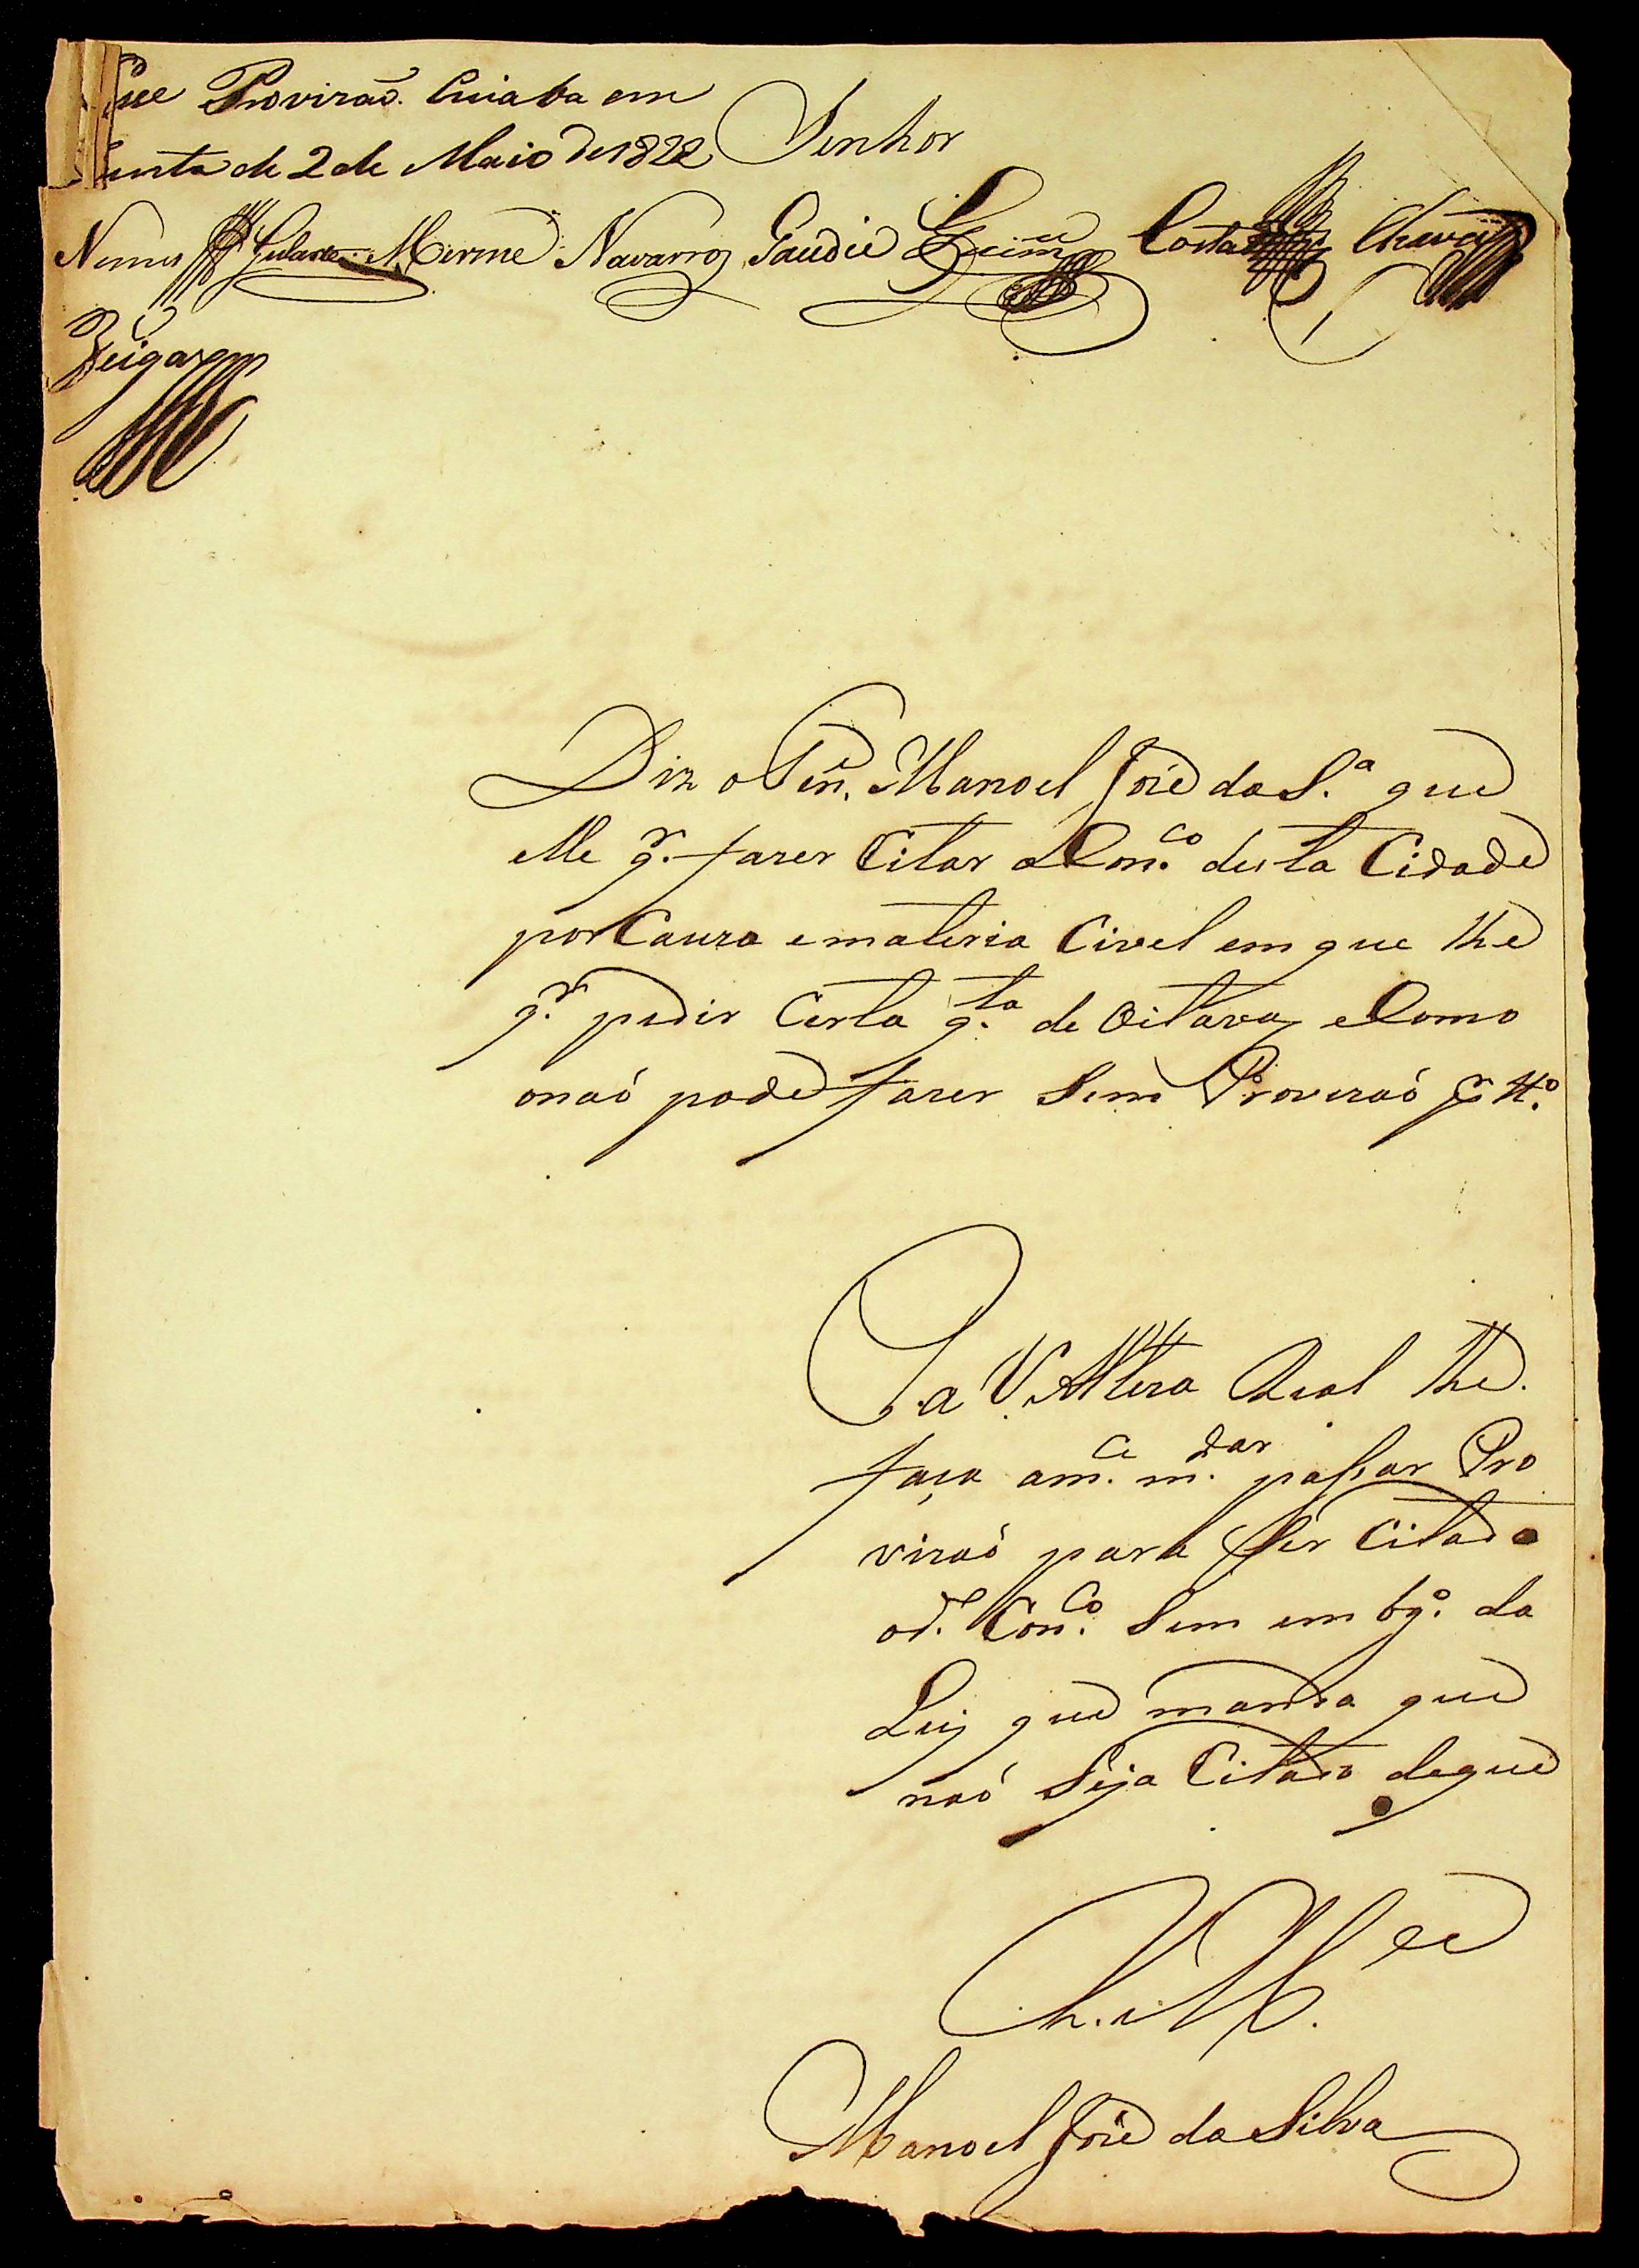 Passe Provizaõ. Cuiaba em
Junta de 2 de Maio de 1822
Senhor
Nunes Gularte Merme Navarro Gaudie Costa Chaves
Veiga
Diz o Ten. Manoel Jozé da S.ª que
elle q.r fazer Citar o Con.co desta Cidade
por Cauza e materia Civel em que lhe
q.r pedir Certa q.ta de Oitavas e Como
o naõ pode fazer Sem Provizaõ p.r tt.º
P. a V. Alteza Real lhe
faça a m.ce m.dar passar Pro
vizaõ para Ser Citado
o d.º Con.co Sem emb.gº da
Ley que manda que
naõ Seja Citado de que
E. R. M.ce
Manoel Jozé da Silva